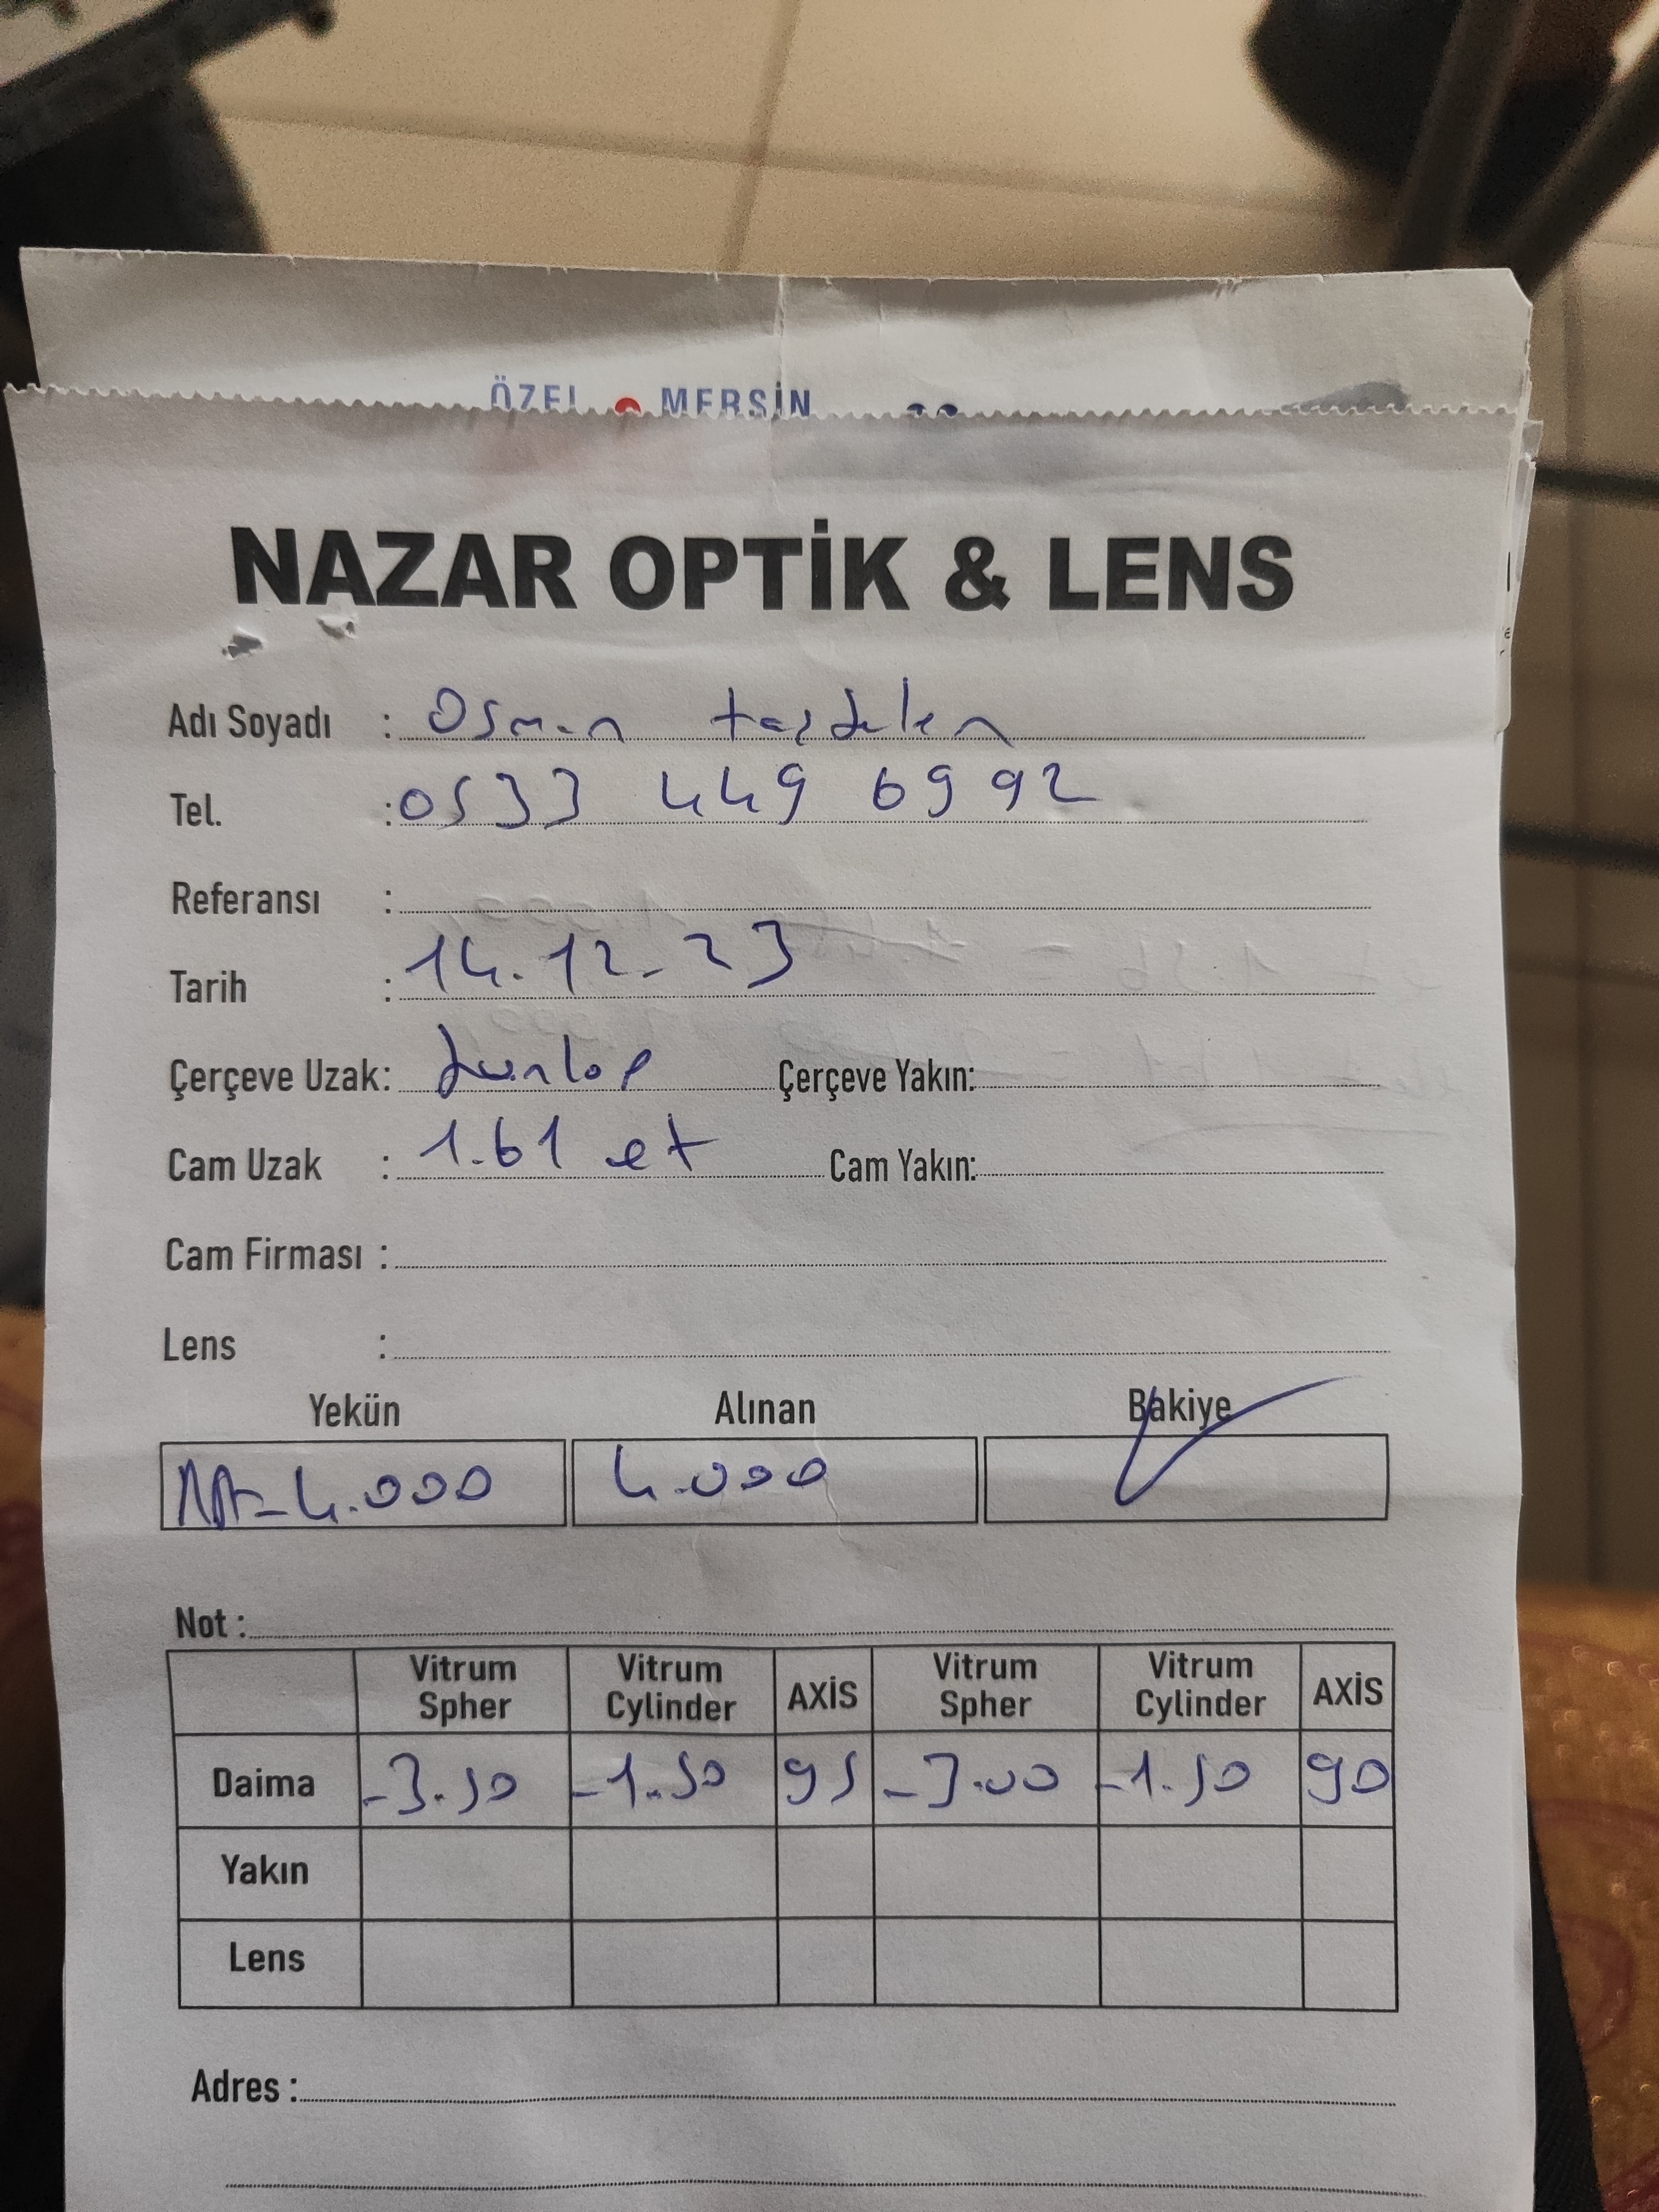 ÖZEL MERSİN
NAZAR OPTİK & LENS
Adı Soyadı : Osman taşdelen
Tel. : 0533 449 6992
Referansı :
Tarih : 14.12.23
Çerçeve Uzak: dunlop Çerçeve Yakın:
Cam Uzak : 1.61 et Cam Yakın:
Cam Firması :
Lens :
Yekün Alınan Bakiye
4.000 4.000
Not :
Vitrum Spher Vitrum Cylinder AXİS Vitrum Spher Vitrum Cylinder AXİS
Daima -3.50 -1.50 95 -3.00 -1.50 90
Yakın
Lens
Adres :